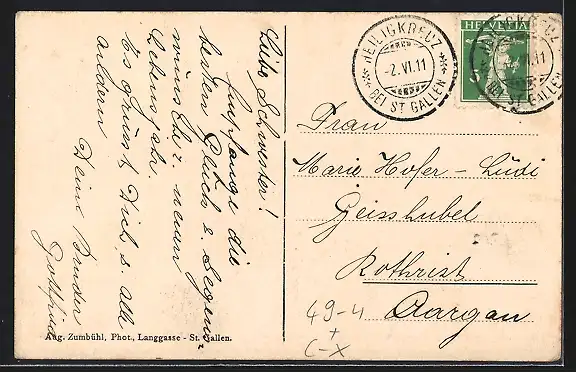 HEILIGKREUZ
-2.VI.11
BEI ST GALLEN
HELVETIA
Frau
Marie Hofer - Lüdi
Geisshubel
Rothrist
Aargau
49-4
+
C-X
Liebe Schwester!
Empfange die
besten Glück- & Segens-
wünsche z. neuen
Lebensj.
Es grüsst Dich & alle
andern
Deine Bruder
Gottfried
Aug. Zumbühl, Phot., Langgasse - St. Gallen.